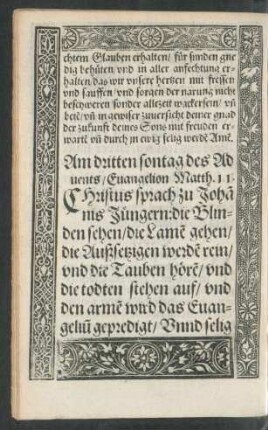 chtem Glauben erhalten/ für sunden gne
dig behüten/ vnd in aller anfechtung er-
halten/ das wir vnsere hertzen mit fressen
vnd sauffen/ vnd sorgen der narung nicht
beschweren sonder allezeit wacker sein/ vñ
betē/ vñ in gewiser zuuersicht deiner gnad
der zukunft deines Sons mit freuden er-
wartē vñ durch in ewig selig werdē Amē.
Am dritten sontag des Ad
uents/ Euangelion Matth. 11.
CHristus sprach zu Johā
nis Jüngern: die Blin-
den sehen/ die Lamē gehen/
die Auſsetzigen werdē rein/
vnd die Tauben hörē/ vnd
die todten stehen auf/ vnd
den armē wird das Euan-
geliū gepredigt/ Vnnd selig